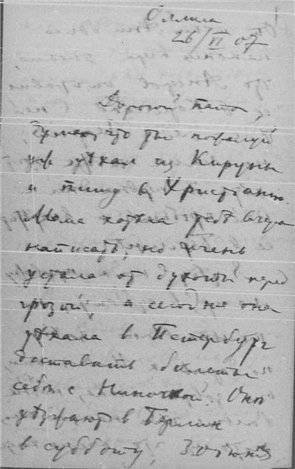 Оллила
26/VI 07
Дорогой папа,
Думаю, что ты пожалуй
уж уехал из Кируны
и пишу в Христианию.
Мама хотела тебе вчера
написать, но очень
устала от духоты перед
грозой, а сегодня она
уехала в Петербург
доставать билеты
себе с Ниночкой. Они
уезжают в Берлин
в субботу, 30 июня